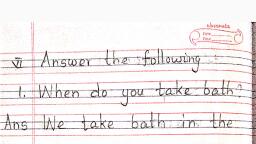 classmate
Date
Page
vi Answer the following :
1. When do you take bath?
Ans We take bath in the